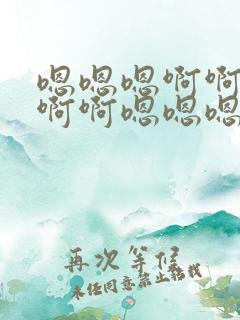 嗯嗯嗯啊啊
啊啊嗯嗯嗯
再次等候
未经同意禁止转载